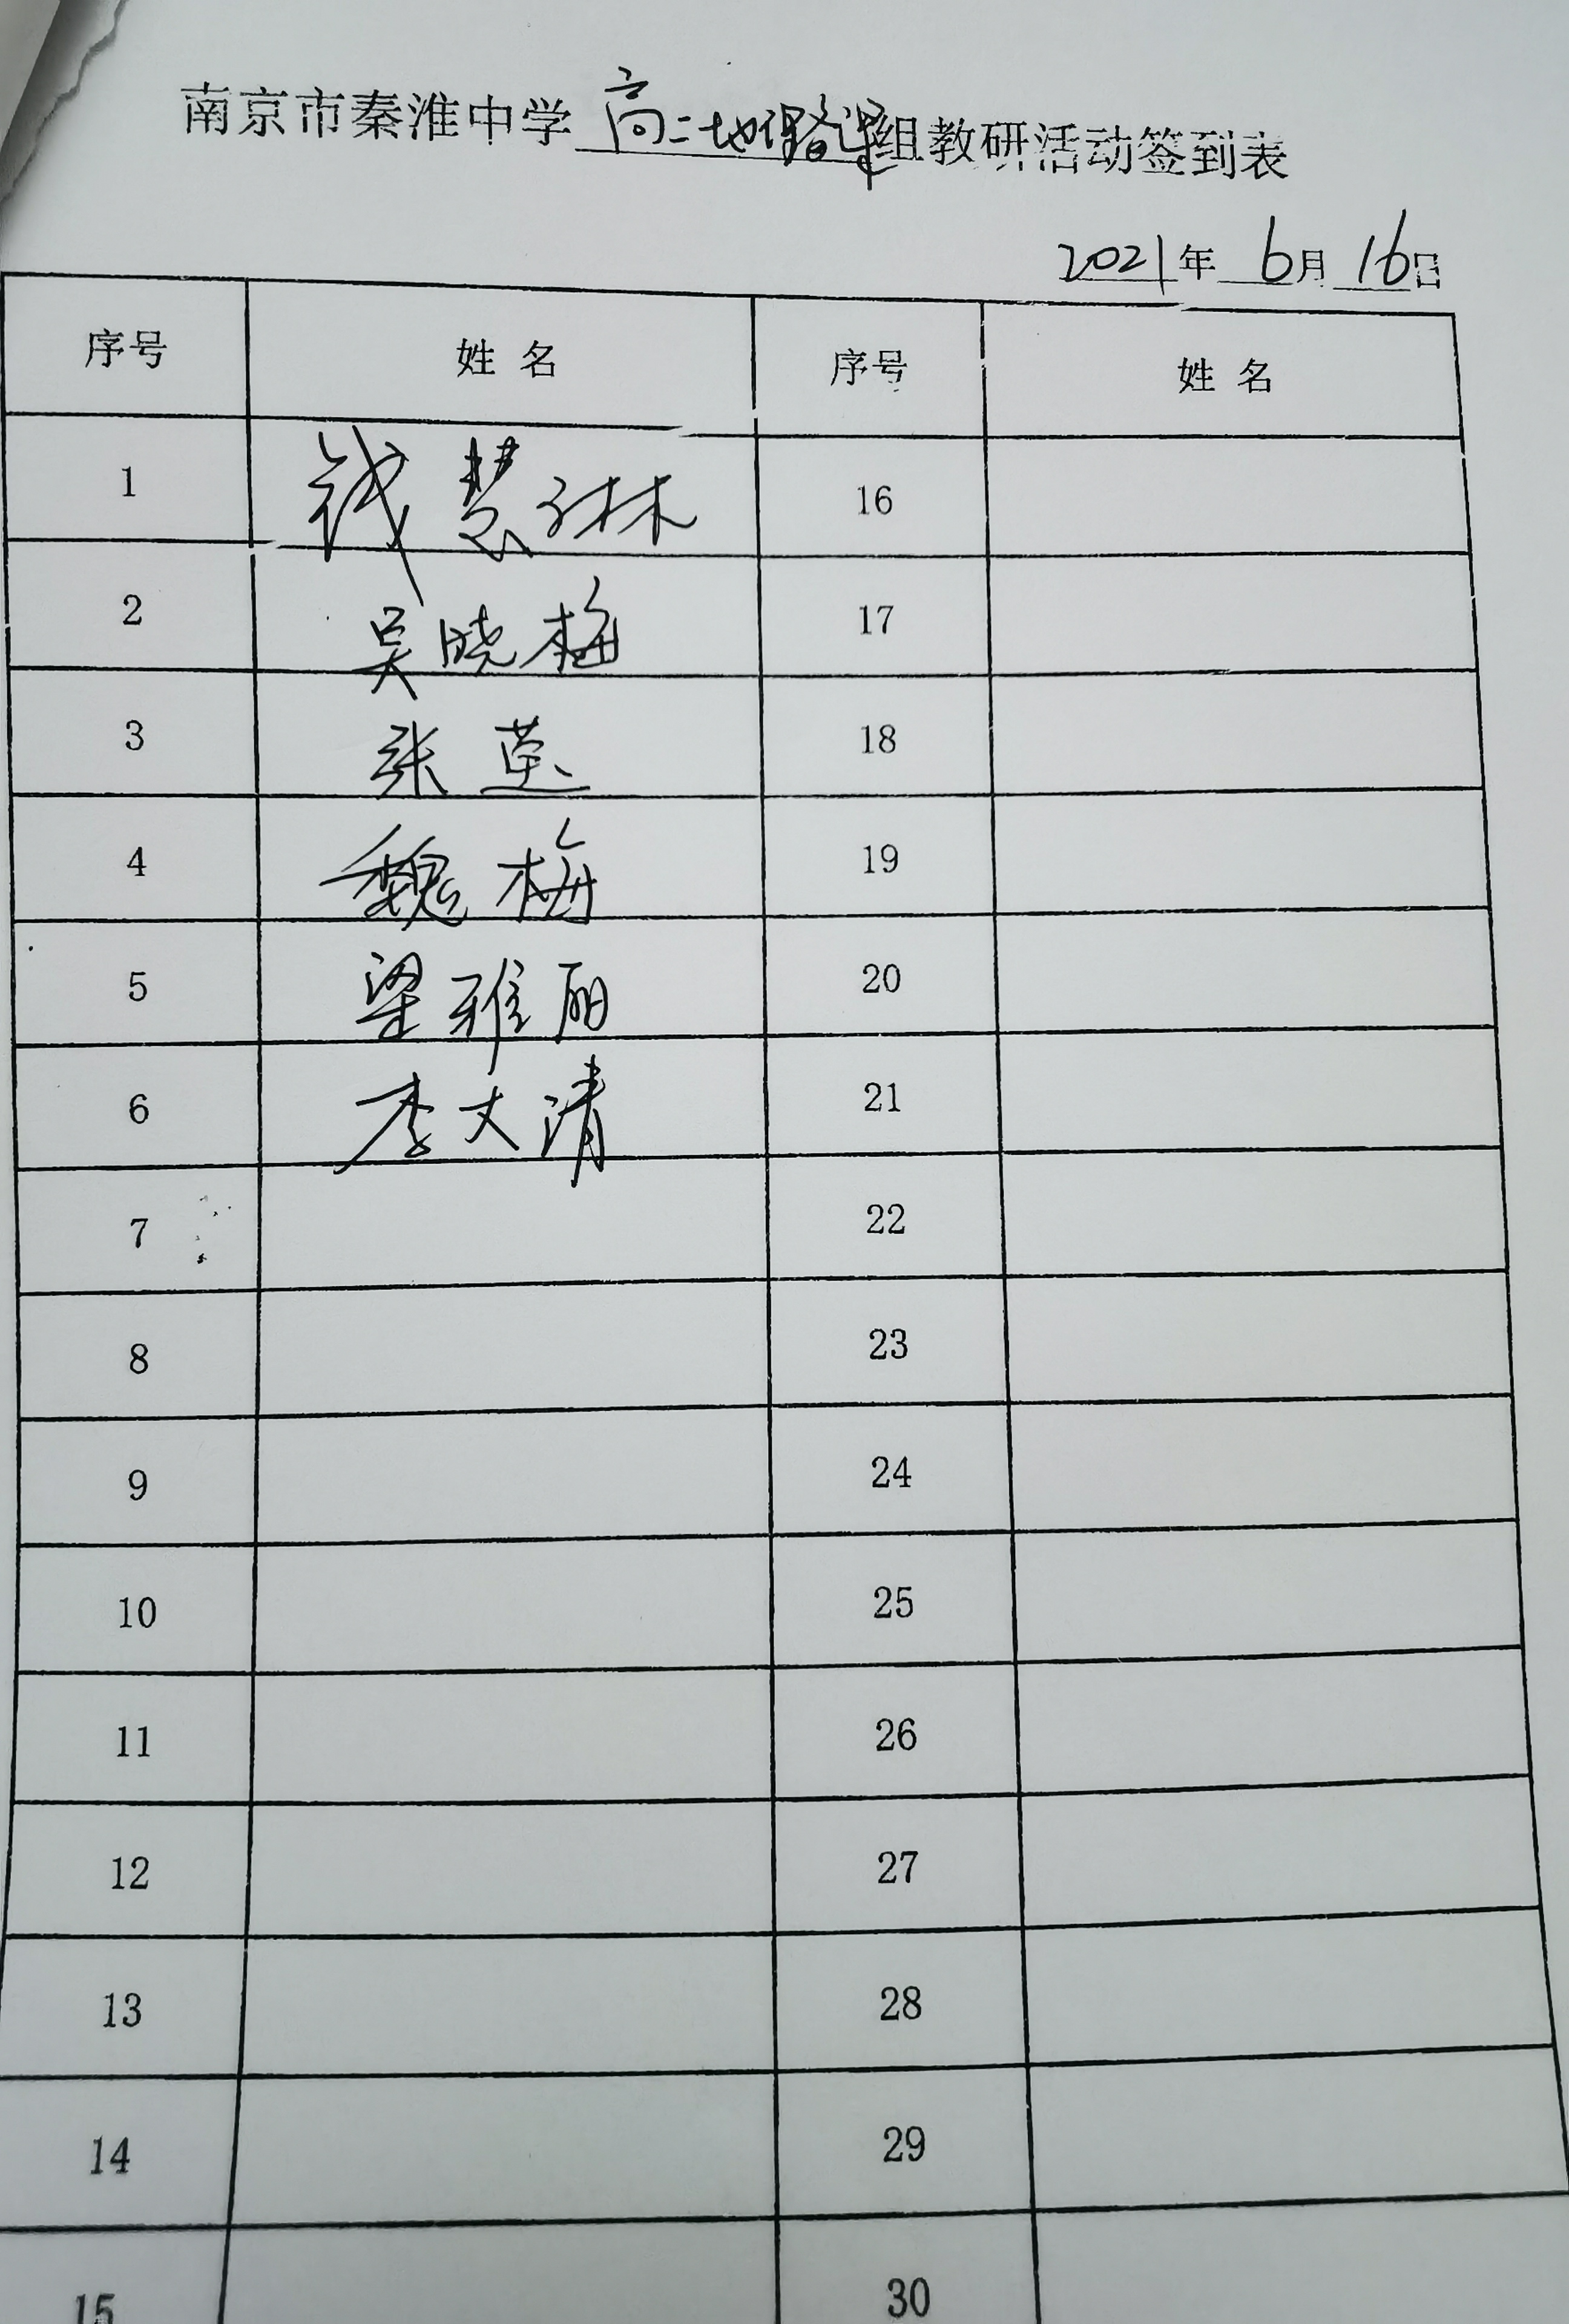 南京市秦淮中学高二地理备课组教研活动签到表
2021年6月16日
序号 姓名 序号 姓名
1 钱慧琳 16
2 吴晓梅 17
3 张莹 18
4 魏梅 19
5 梁雅丽 20
6 李文清 21
7 22
8 23
9 24
10 25
11 26
12 27
13 28
14 29
15 30